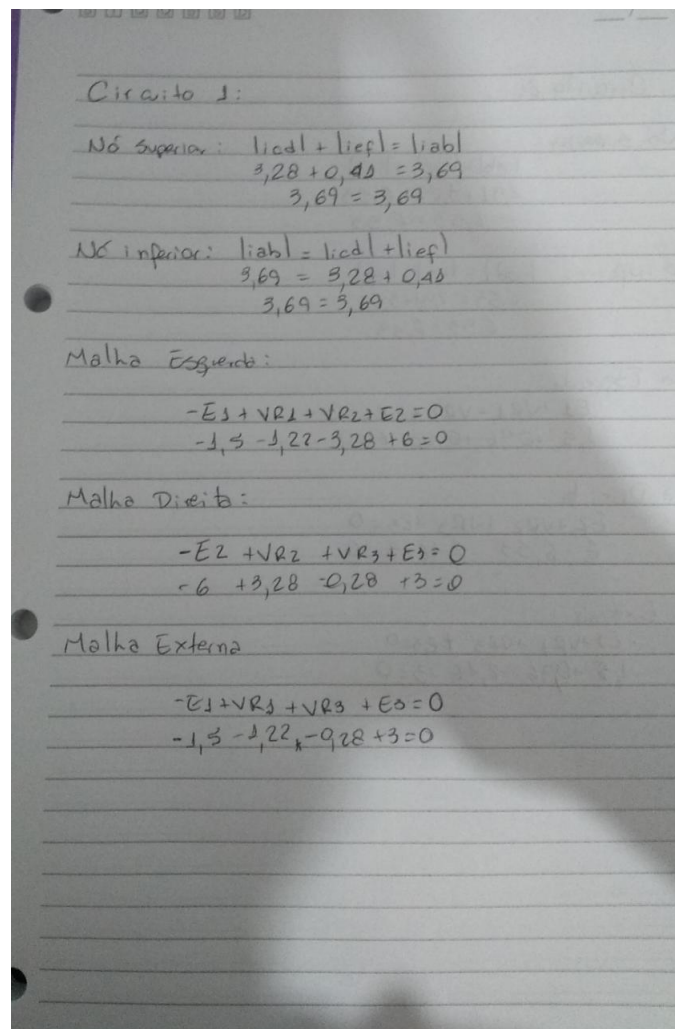 Circuito 1:
Nó Superior: |icd| + |ief| = |iab|
3,28 + 0,41 = 3,69
3,69 = 3,69
Nó inferior: |iab| = |icd| + |ief|
3,69 = 3,28 + 0,41
3,69 = 3,69
Malha Esquerda:
-E1 + VR1 + VR2 + E2 = 0
-1,5 -1,22 -3,28 +6 = 0
Malha Direita:
-E2 +VR2 +VR3 + E3 = 0
-6 +3,28 -0,28 +3 = 0
Malha Externa
-E1 + VR1 + VR3 + E3 = 0
-1,5 -1,22 -0,28 +3 = 0